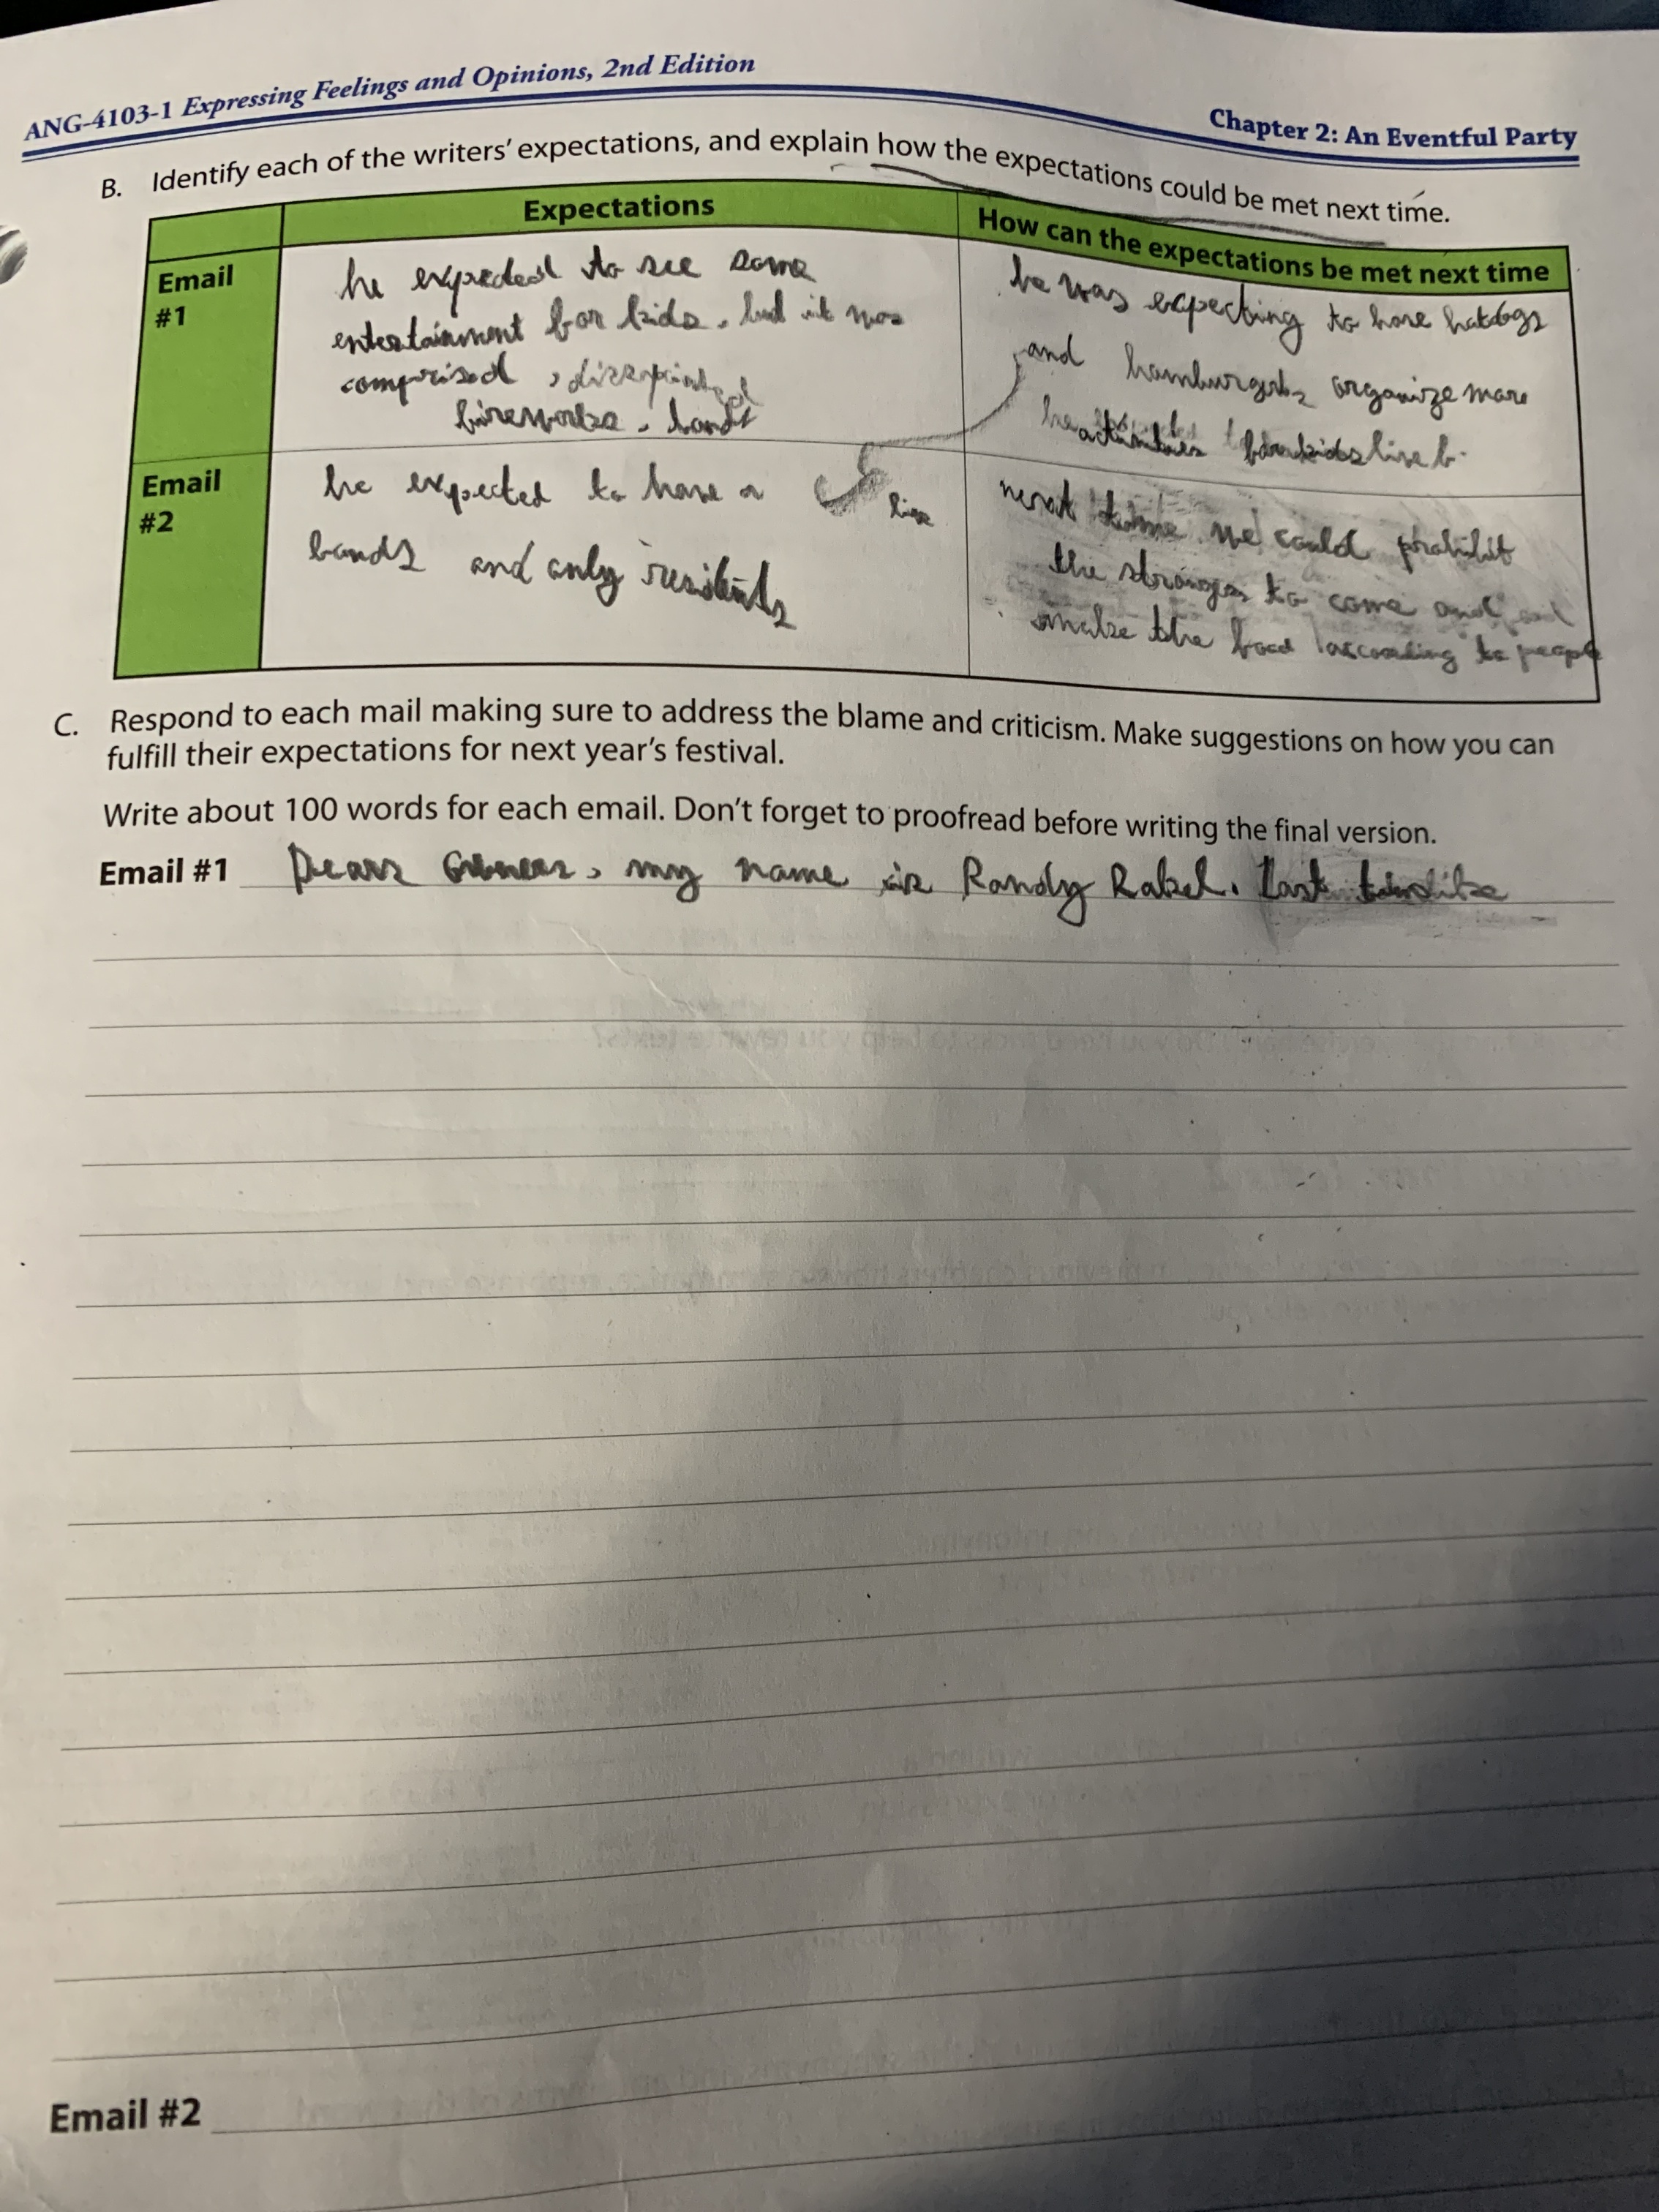 ANG-4103-1 Expressing Feelings and Opinions, 2nd Edition
Chapter 2: An Eventful Party
B. Identify each of the writers' expectations, and explain how the expectations could be met next time.
Expectations
How can the expectations be met next time
Email #1
he expected to see some
entertainment for kids. but it was
comprised, disappointed
fireworks. band
he was expecting to have hotdogs
and hamburgers organize more
he activities for kids live b.
Email #2
he expected to have a live
bands and only residents
next time we could prohibit
the stranges to come and
make the food according to people
C. Respond to each mail making sure to address the blame and criticism. Make suggestions on how you can
fulfill their expectations for next year's festival.
Write about 100 words for each email. Don't forget to proofread before writing the final version.
Email #1 Dear my name is Randy Rabel. Last
Email #2